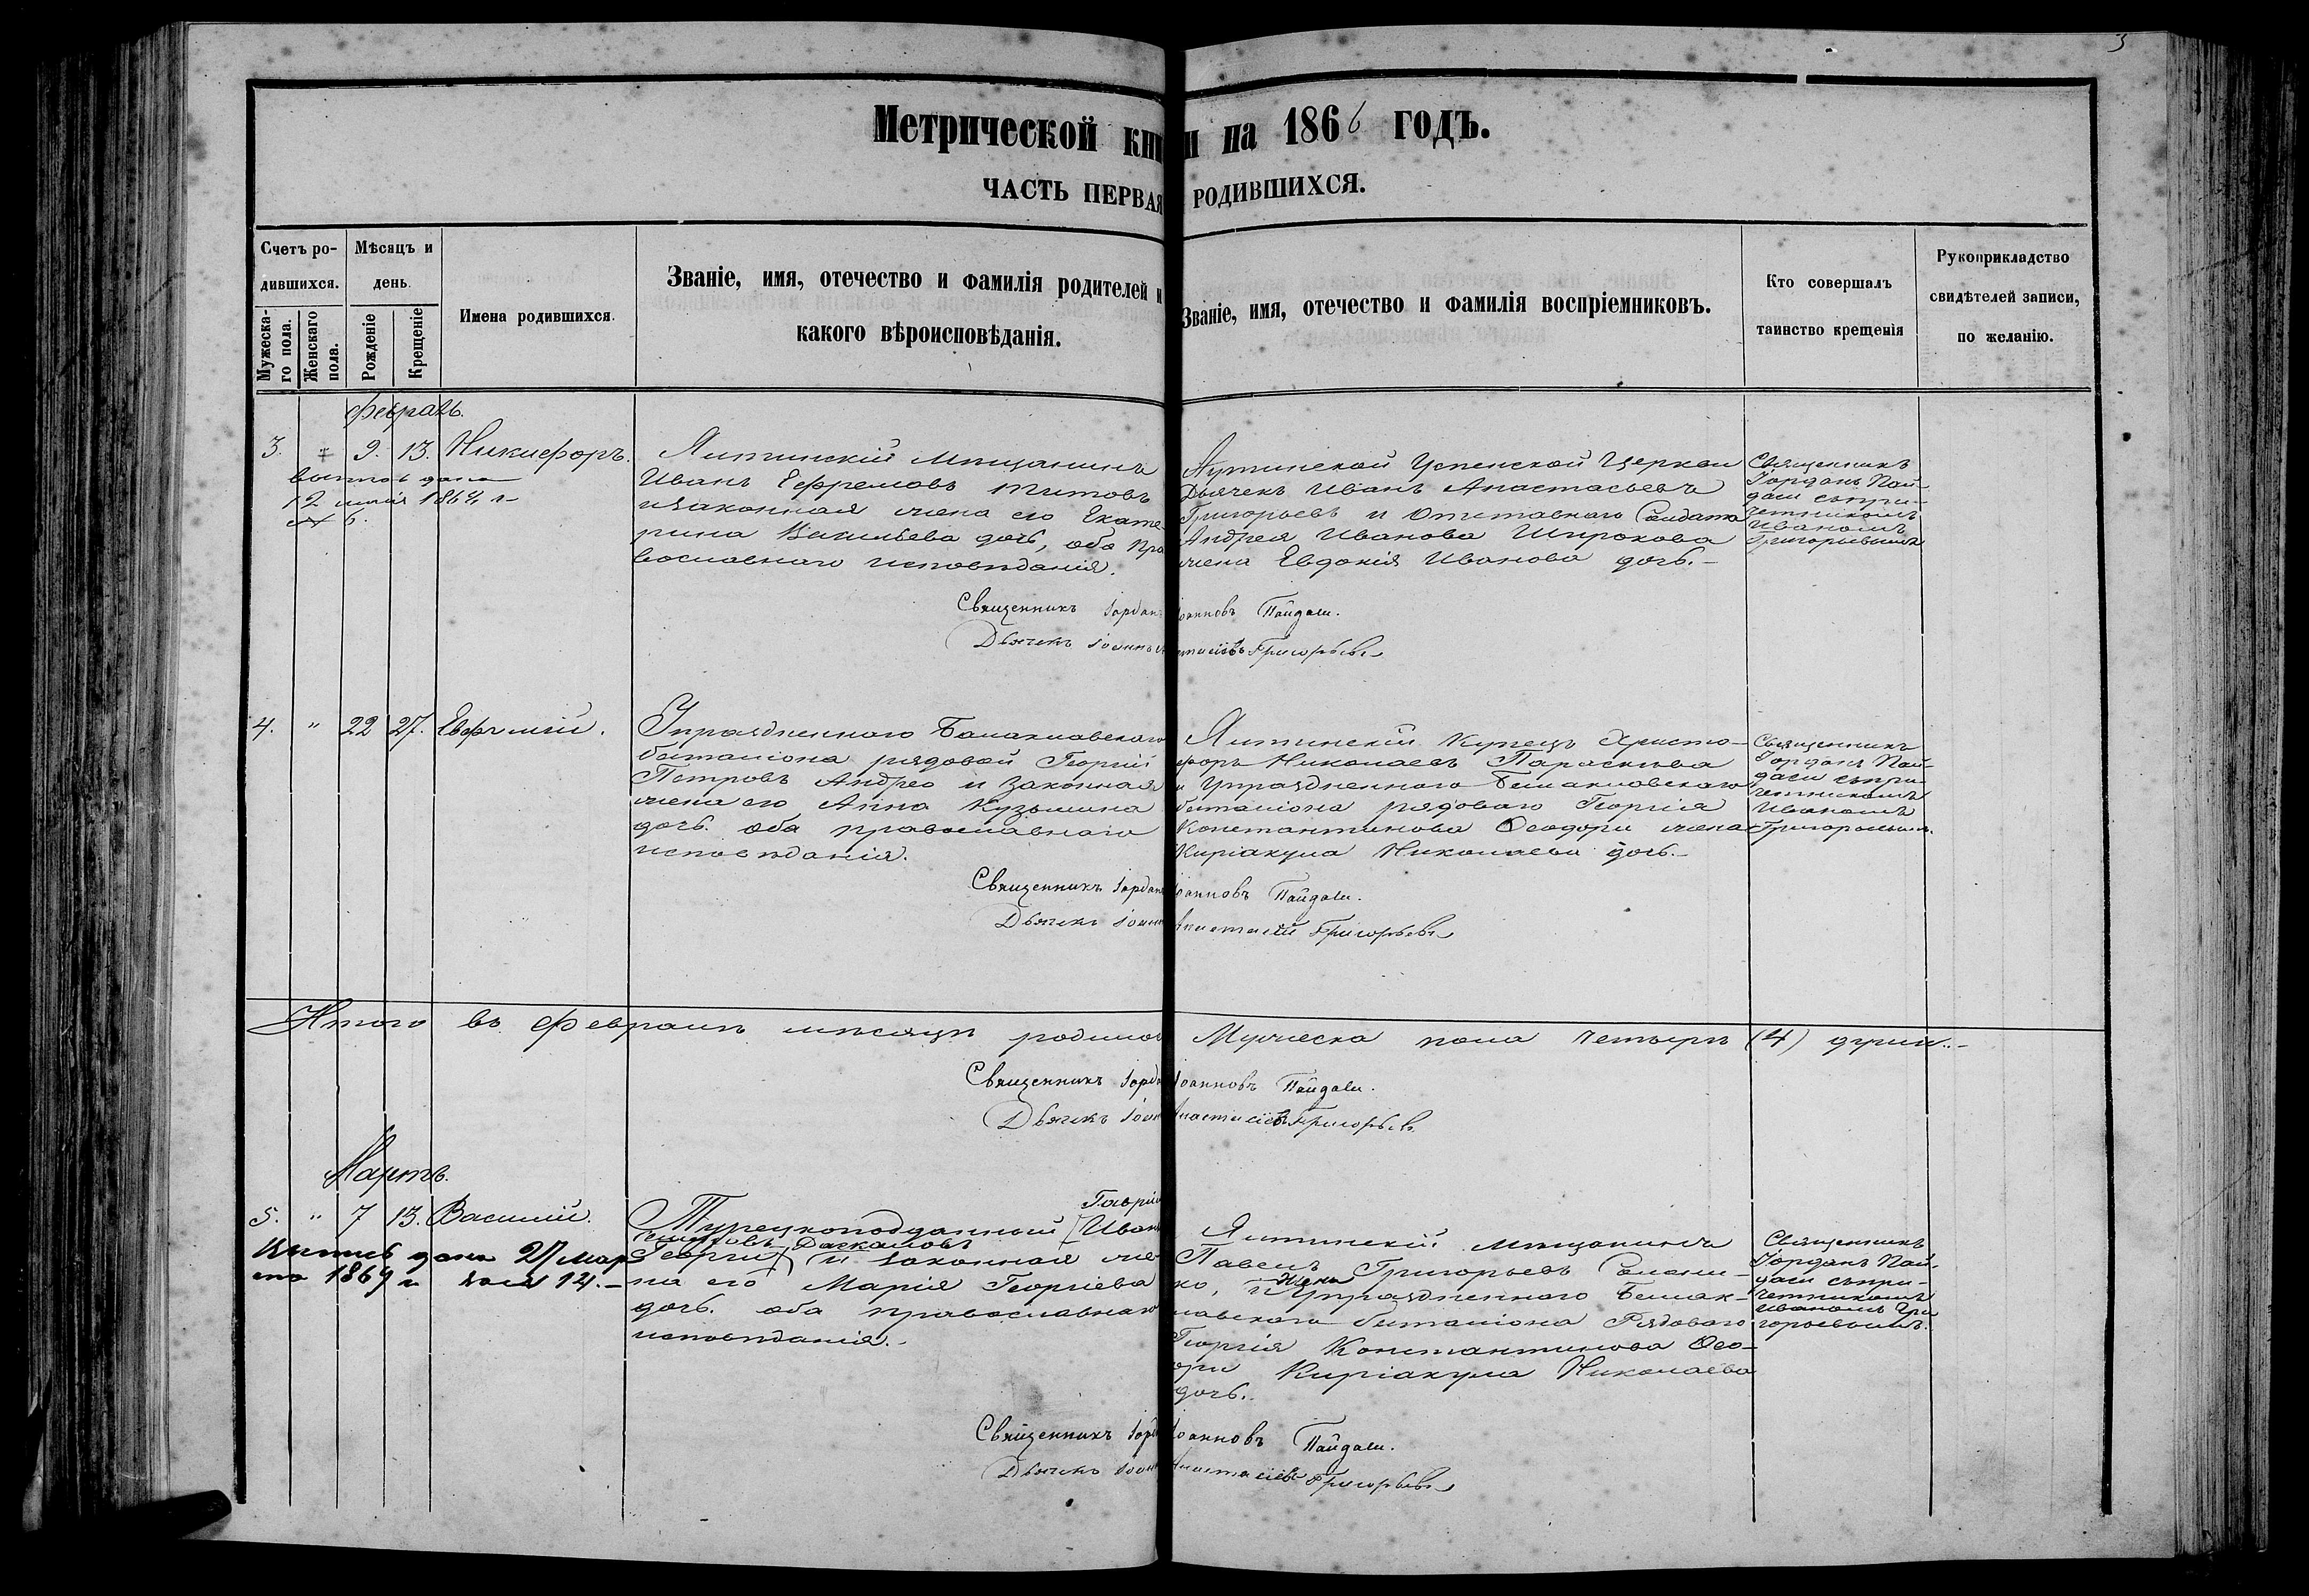 3
Метрической кни и на 1866 годъ.
ЧАСТЬ ПЕРВАЯ РОДИВШИХСЯ.
Счетъ ро-
дившихся.
Мужеска-
го пола.
Женскаго
пола.
Мѣсяцъ и
день.
Рожденіе
Крещеніе
Имена родившихся.
Званіе, имя, отечество и фамилія родителей и
какого вѣроисповѣданія.
Званіе, имя, отечество и фамилія воспріемниковъ.
Кто совершалъ
таинство крещенія
Рукоприкладство
свидѣтелей записи,
по желанію.
Февраль.
3. 9. 13. Никифоръ.
дана
12 1864 г
№ 6.
Ялтинскій мѣщанинъ
Иванъ Ефремовъ Титовъ
и законная жена его Екате-
рина Васильева дочь, оба пра
вославнаго исповѣданія.
Аутинской Успенской Церкви
Дьячекъ Иванъ Анастасьевъ
Григорьевъ и Отставнаго Солдата
Андрея Иванова Широкова
жена Евдокія Иванова дочь.-
Священникъ
Іорданъ Пай-
дали съ при-
четникомъ
Иваномъ
Григорьевымъ
Священникъ Іордан Іоанновъ Пайдали.
Дьячекъ Іоаннъ Григорьевъ
4. " 22 27. Евфимій.
Упраздненнаго Балаклавскаго
баталіона рядовой Георгій
Петровъ Андрео и законная
жена его Анна Кузьмина
дочь. оба православнаго
исповѣданія.
Ялтинскій Купецъ Христо-
форъ Николаевъ Параскева
и Упраздненнаго Балаклавскаго
баталіона рядоваго Георгія
Константинова Ѳеодори жена
Киріакула Николаева дочь.-
Священникъ
Іорданъ Пай-
дали съ при-
четникомъ
Иваномъ
Григорьевымъ.
Священникъ Іорданъ Іоанновъ Пайдали.
Дьячекъ Іоанн Григорьевъ
Итого въ Февралѣ мѣсяцѣ родилось Мужеска пола четыре (4) души.-
Священникъ Іорда Іоанновъ Пайдали.
Дьячекъ Іоан Анастасіевъ Григорьевъ
Мартъ.
5. " 7 13. Василій.
дана 27 мар
та 1869 г 14.-
Гавріи
Турецкоподданный [Иван
Георгій] и законная же
на его Марія Георгіева
дочь. оба православнаго
исповѣданія.-
Ялтинскій мѣщанинъ
Павелъ Григорьевъ
ко, и жена Упраздненнаго Балак-
лавскаго баталіона Рядоваго
Георгія Константинова Ѳео-
дори Киріакула Николаева
дочь.
Священникъ
Іорданъ Пай-
дали съ при-
четникомъ
Иваномъ Гри
горьевымъ.
Священникъ Іорд Іоанновъ Пайдали.
Дьячекъ Іоан Анастасіевъ Григорьевъ